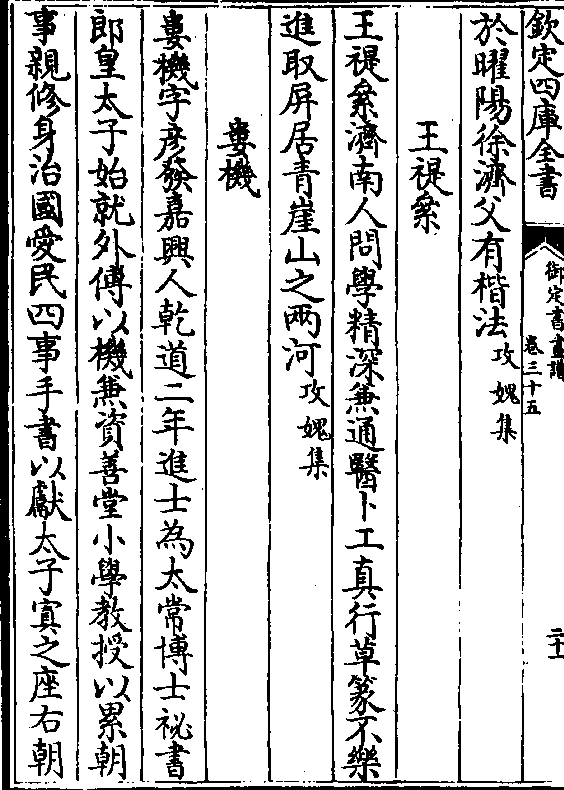 欽定四庫全書
御定書畫譜
卷三十五
二十一
於曜陽徐濟父有楷法攻媿集
王禔絫
王禔絫濟南人問學精深兼通醫卜工真行草篆不樂
進取屏居青崖山之兩河攻媿集
婁機
婁機字彥發嘉興人乾道二年進士為太常博士祕書
郎皇太子始就外傅以機兼資善堂小學教授以累朝
事親修身治國愛民四事手書以獻太子寘之座右朝